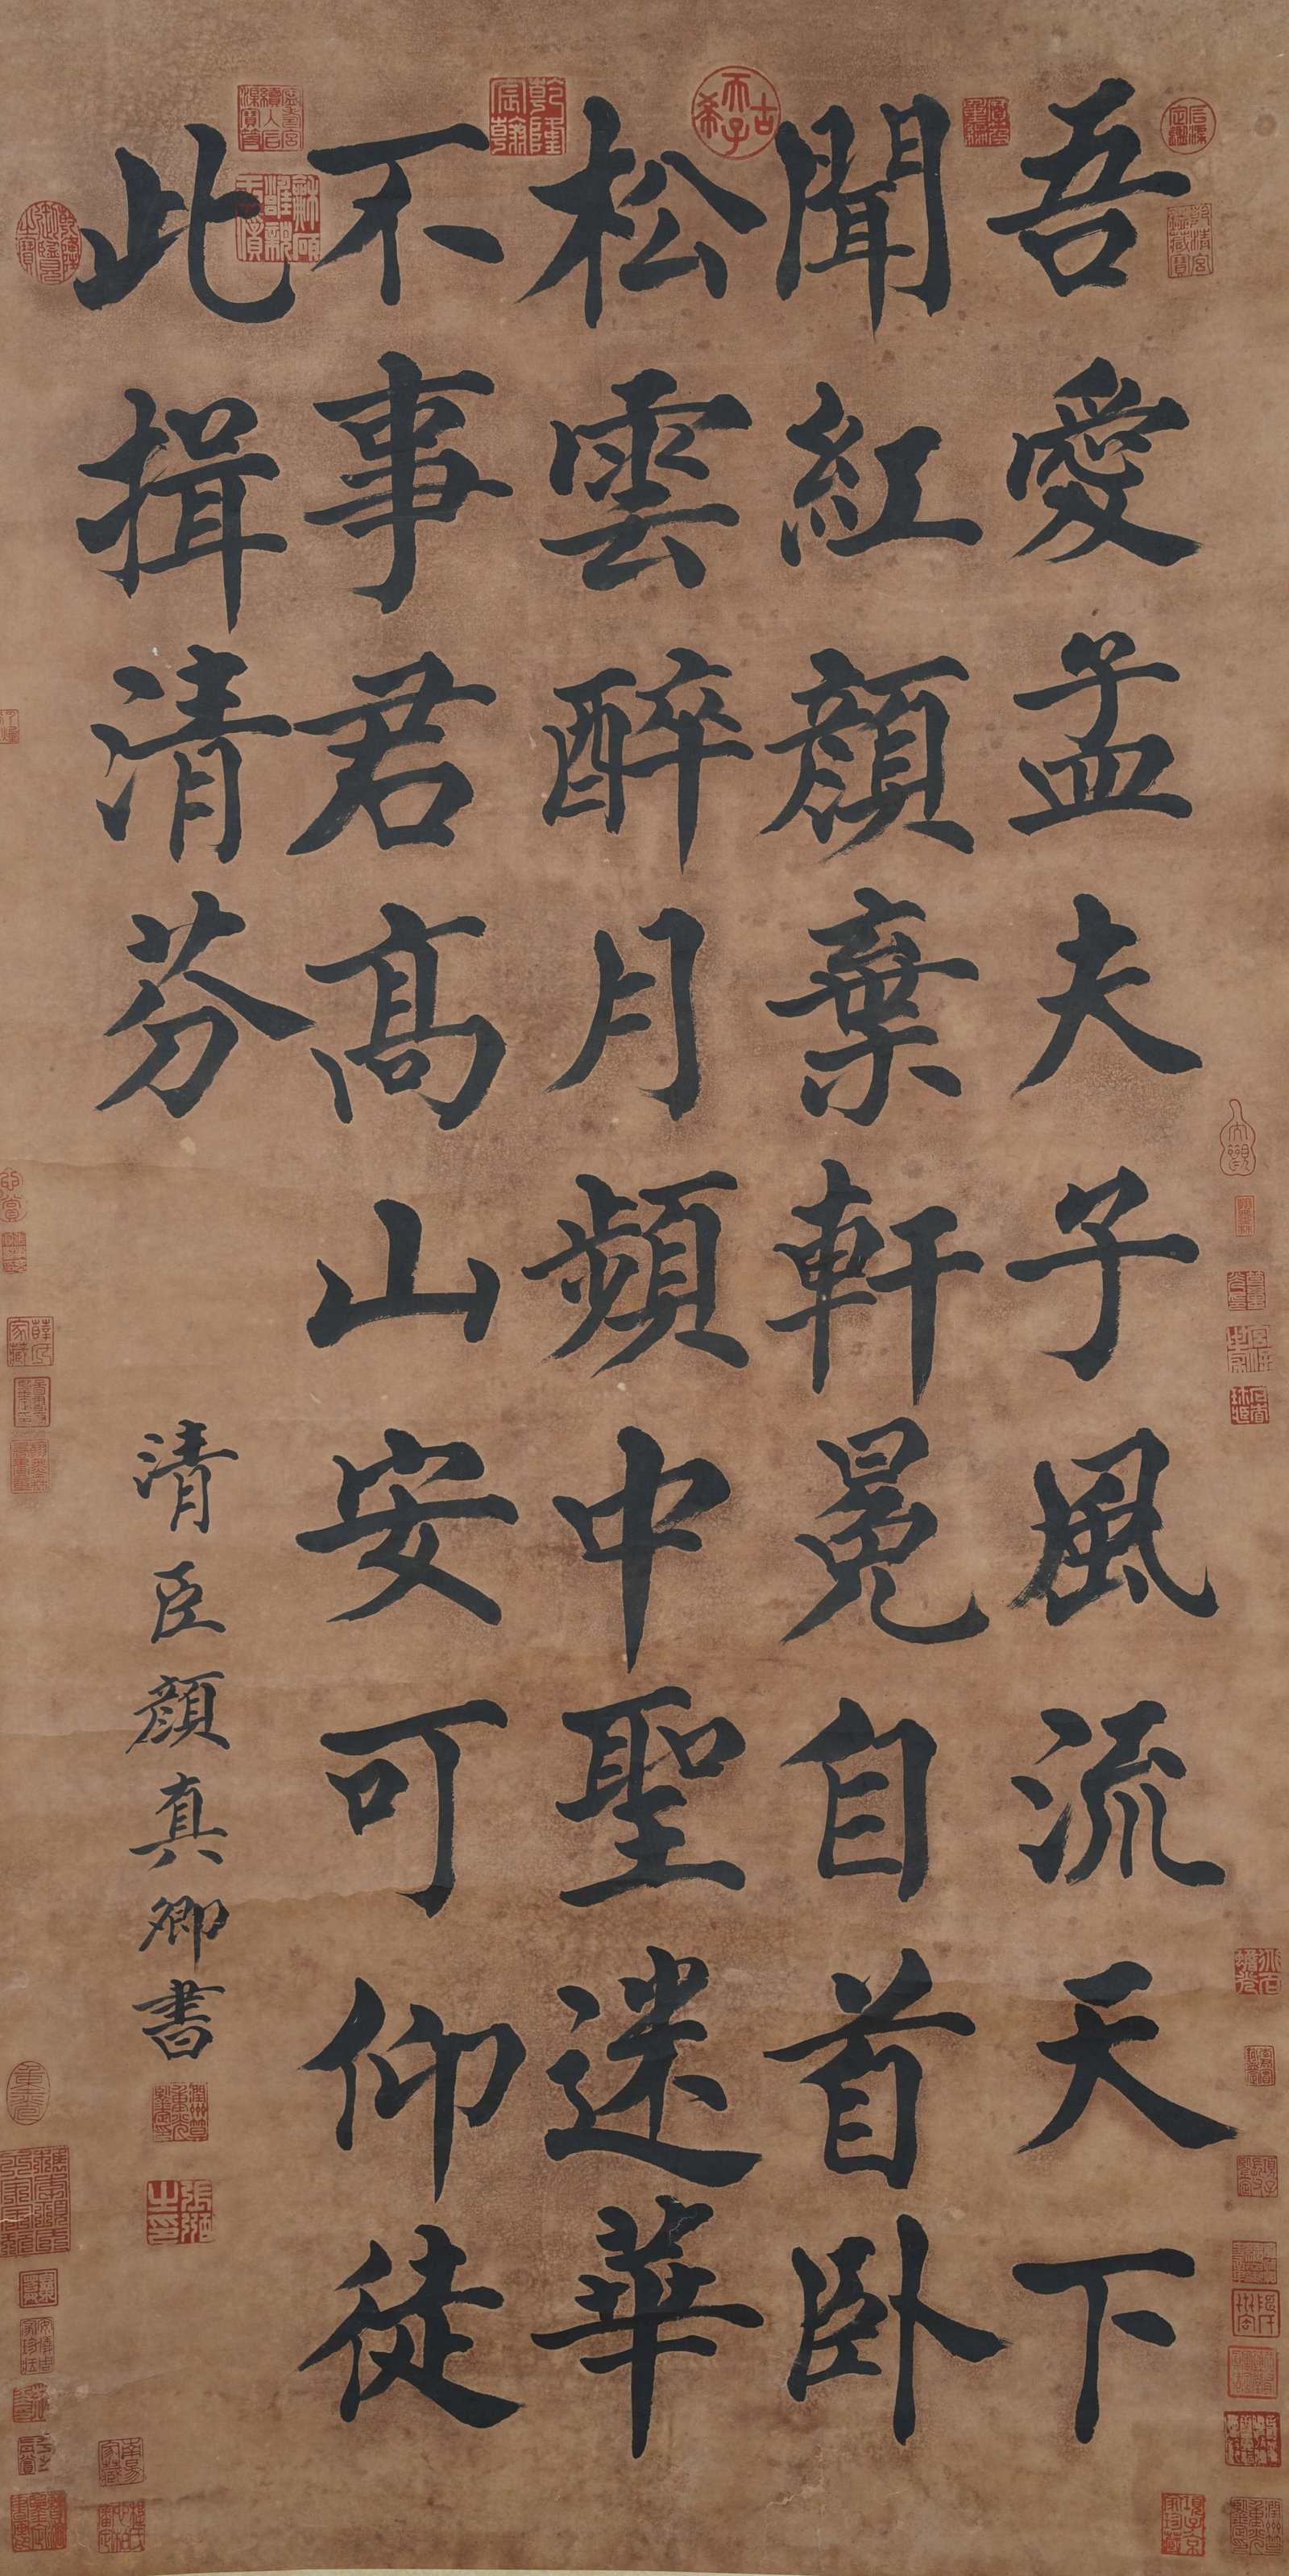 吾愛孟夫子風流天下
聞紅顏棄軒冕自首卧
松雲醉月頻中聖迷華
不事君髙山安可仰徒
此揖清芬
清臣顏真卿書
古希天子
乾隆宸翰